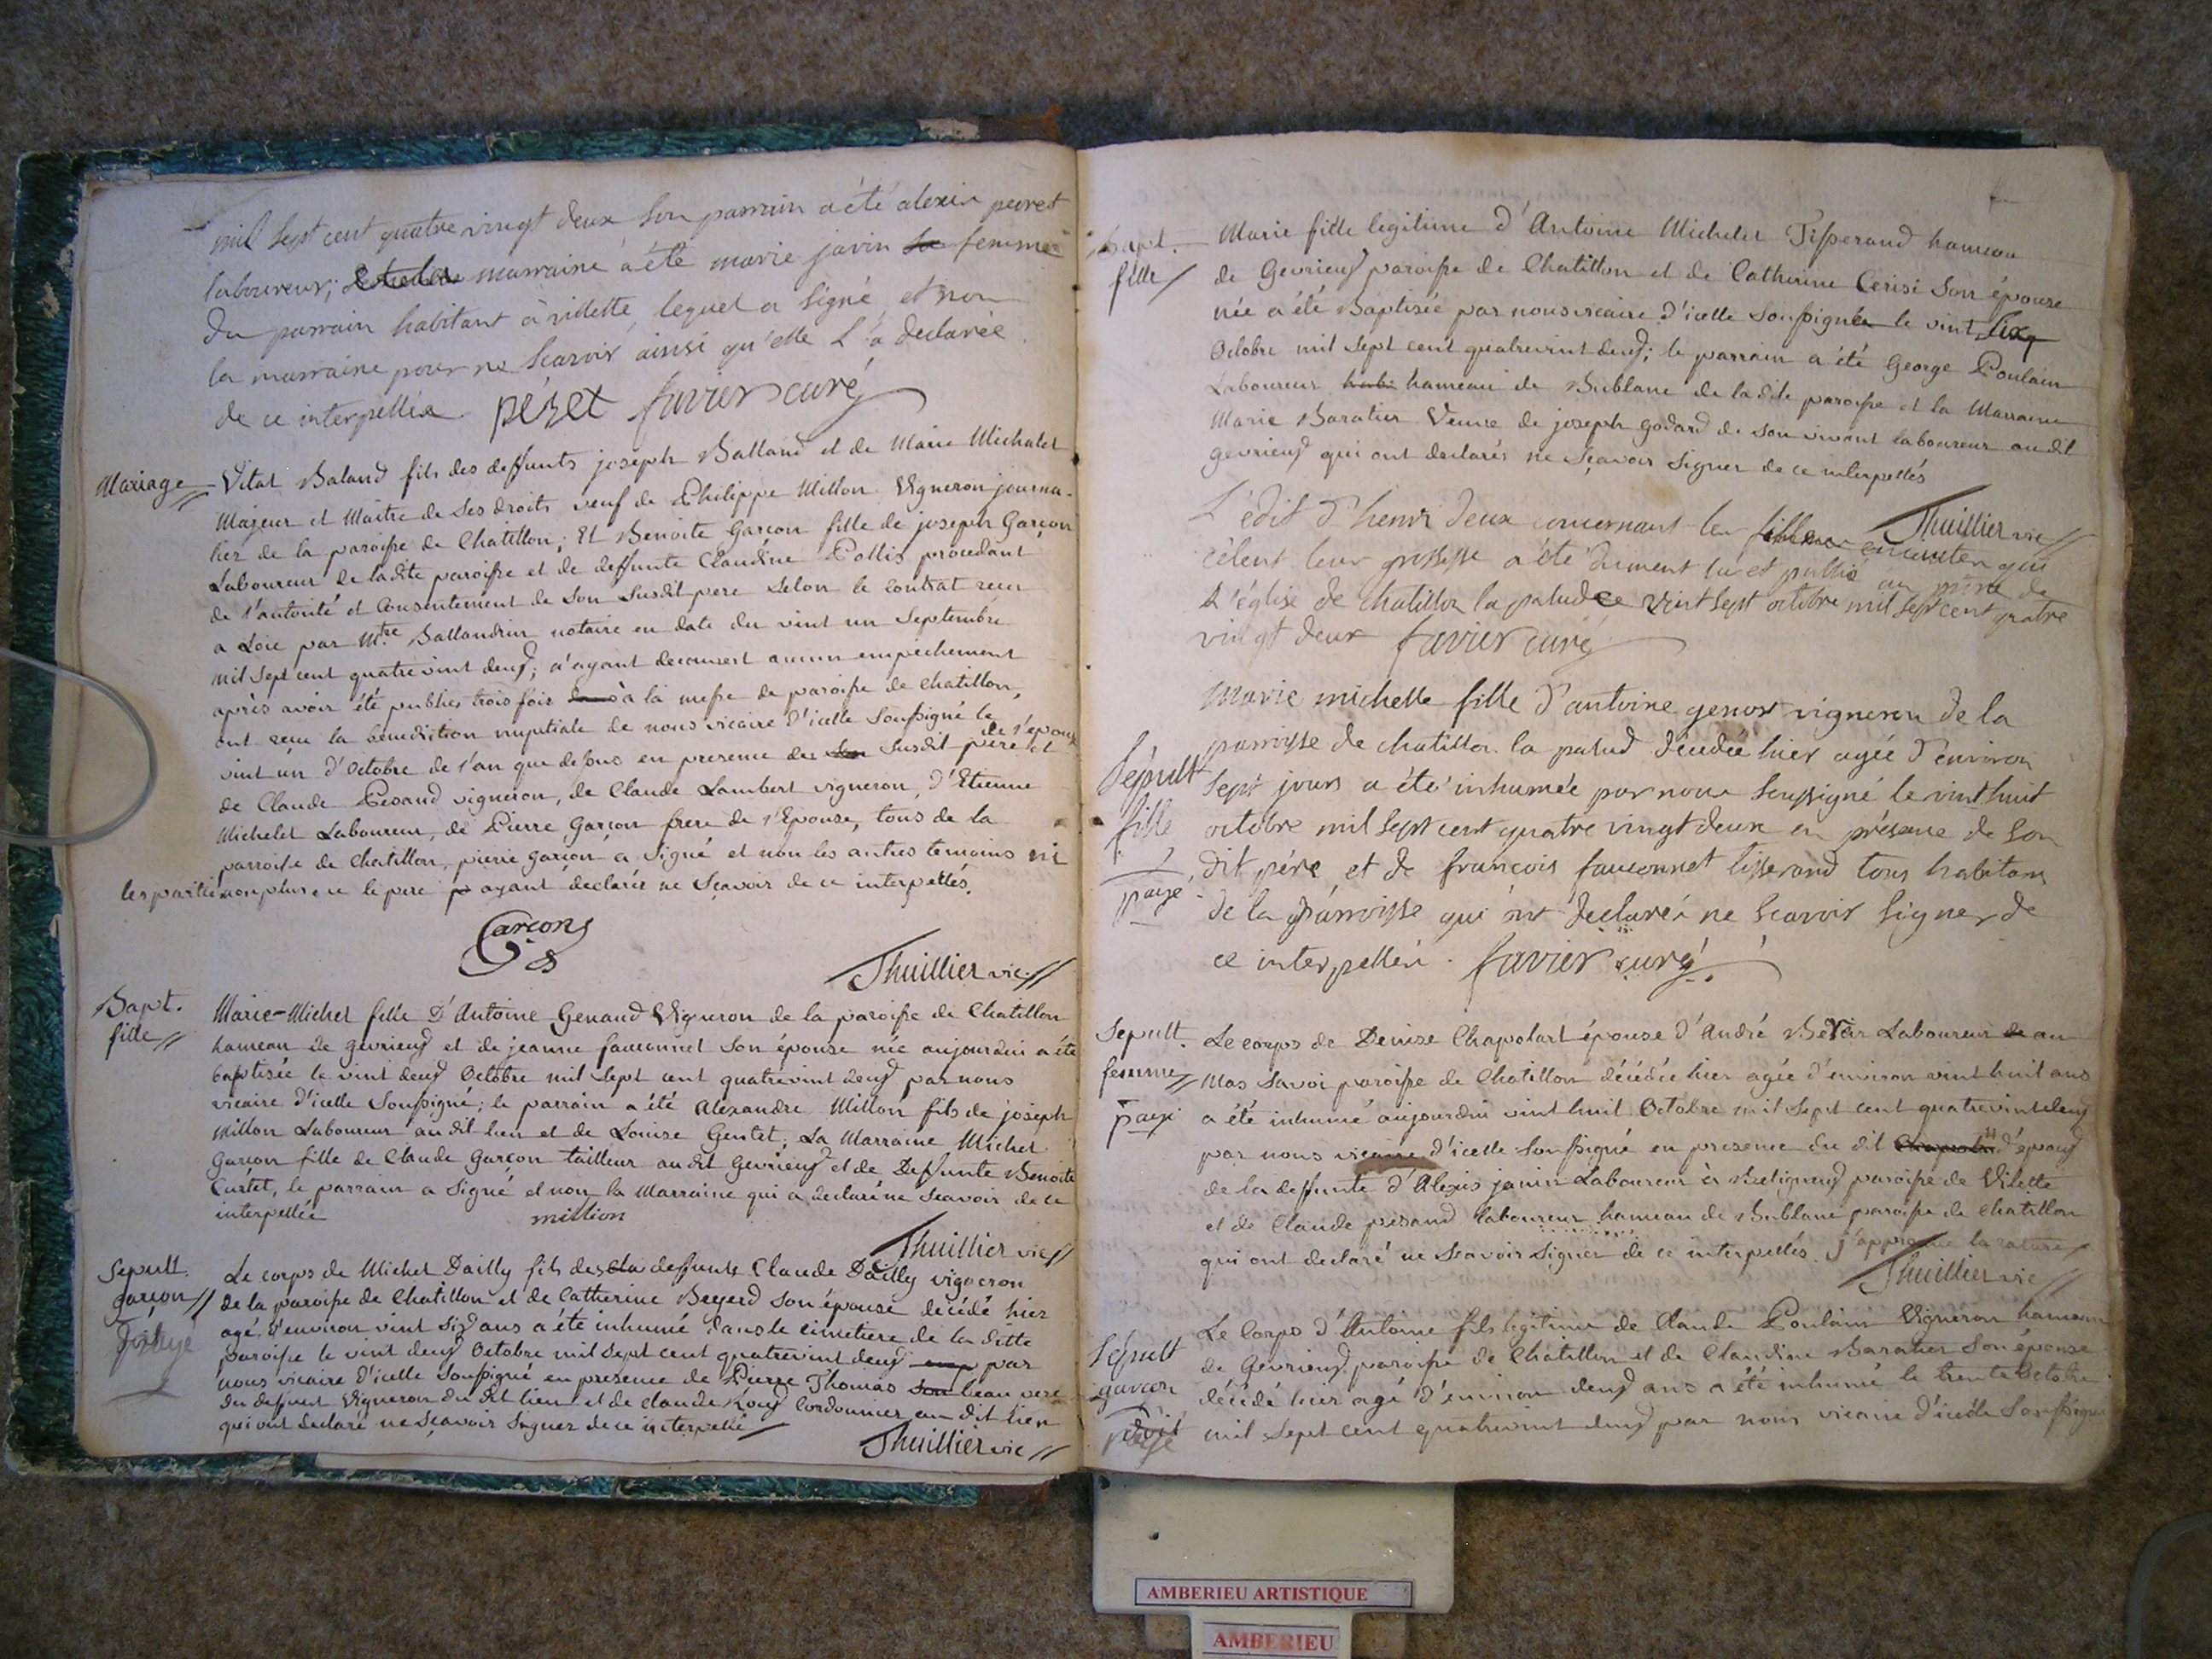 mil sept cent quatre vingt deux son parrain a été alexis peiret
laboureur; marraine a été marie janin sa femme
du parrain habitant à villette, lequel a signé, et non
la marraine pour ne scavoir ainsi qu'elle l'a declarée
de ce interpellée. péret favier curé
Mariage
Vital Baland fils des deffunts joseph Balland et de Marie Michalet
Majeur et Maitre de ses droits veuf de Philippe Millon Vigneron journa-
lier de la paroisse de Chatillon; Et Benoite Garçon fille de joseph Garçon
Laboureur de ladite paroisse et de deffunte Claudine Collis procedant
de l'autorité et Consentement de son susdit pere selon le contrat recu
a Loie par Mtre Ballandrin notaire en date du vint un Septembre
mil sept cent quatrevint deux; n'ayant decouvert aucun empechement
après avoir été publiés trois fois à la messe de paroisse de chatillon,
ont recu la benediction nuptiale de nous vicaire d'icelle soussigné le
vint un d'Octobre de l'an que dessus en presence du susdit père de l'epouse et
de Claude Pesand vigneron, de Claude Lambert vigneron, d'Etienne
Michelet Laboureur, de Pierre Garçon frere de l'Epouse, tous de la
parroisse de Chatillon, pierre garçon a signé et non les autres temoins ni
les parties non plus que le pere ayant declarés ne sçavoir de ce interpellés.
Garçon
Thuillier vic.
Bapt.
fille
Marie-Michel fille D'Antoine Genaud Vigneron de la paroisse de Chatillon
hameau de gevrieux et de jeanne fauconnet son épouse née aujourdui a été
baptisée le vint deux Octobre mil sept cent quatrevint deux par nous
vicaire d'icelle soussigné; le parrain a été Alexandre Millon fils de joseph
Millon Laboureur au dit lieu et de Louise Gentet; La Marraine Michel
Garçon fille de Claude Garçon tailleur au dit Gevrieux et de Deffunte Benoite
Curtet, le parrain a signé et non la Marraine qui a declaré ne scavoir de ce
interpellée
million
Thuillier vic
Sepult.
garçon
Le corps de Michel Dailly fils des deffunts Claude Dailly vigneron
de la paroisse de Chatillon et de Catherine Beyerd son épouse décédé hier
agé d'environ vint six ans a été inhumé dans le cimetiere de la ditte
paroisse le vint deux Octobre mil sept cent quatrevint deux par
nous vicaire d'icelle soussigné en presence de Pierre Thomas beau pere
du deffunt Vigneron du dit lieu et de claude Roux Cordonnier au dit lieu
qui ont declaré ne sçavoir signer de ce interpellé
Thuillier vic
Bapt.
fille
Marie fille legitime d'Antoine Michelet Tisserand hameau
de Gevrieux paroisse de Chatillon et de Catherine Cerisi son épouse
née a été Baptisée par nous vicaire d'icelle soussigné le vint six
Octobre mil sept cent quatrevint deux; le parrain a été George Poulain
Laboureur hameau de Bublane de la dite paroisse et la Marraine
Marie Baratier Veuve de joseph godard de son vivant laboureur au dit
gevrieux qui ont declarés ne sçavoir signer de ce interpellés
Thuillier vic
L'édit d'henri deux concernant les filles enceintes qui
cèlent leur grossesse a été dument lu et publié au prône de
L'église de chatillon la palud ce vint sept octobre mil sept cent quatre
vingt deux favier curé
Sépult
fille
payé
Marie michelle fille d'antoine genost vigneron de la
parroisse de chatillon la palud décédée hier agée d'environ
sept jours a été inhumée par nous soussigné le vint huit
octobre mil sept cent quatre vingt deux en présence de son
dit père, et de françois fauconnet tisserand tous habitans
de la parroisse qui ont declarés ne scavoir signer de
ce interpellés. favier curé
Sepult.
femme
payé
Le corps de Denise Chapolart épouse d'André Laboureur au
Mas Savoi paroisse de Chatillon décédée hier agée d'environ vint huit ans
a été inhumé aujourdui vint huit Octobre mil sept cent quatrevint deux
par nous vicaire d'icelle soussigné en presence du dit d'époux
de la deffunte d'Alexis janin Laboureur à Buligneux paroisse de Vilette
et de Claude pesand laboureur hameau de Bublane paroisse de chatillon
qui ont declaré ne scavoir signer de ce interpellés. j'approuve la rature
Thuillier vic
Sépult
garçon
doit
Le Corps d'Antoine fils legitime de Claude Poulain Vigneron hameau
de Gevrieux paroisse de Chatillon et de Claudine Baratier son épouse
décédé hier agé d'environ deux ans a été inhumé le trente Octobre
mil sept cent quatrevint deux par nous vicaire d'icelle soussigné
AMBERIEU ARTISTIQUE
AMBERIEU